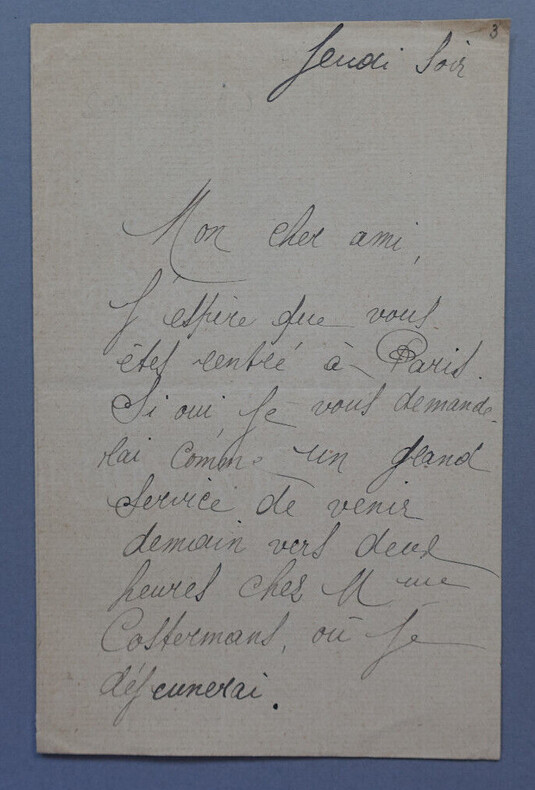 3
Jeudi Soir
Mon cher ami,
J'espère que vous
êtes rentré à Paris.
Si oui, Je vous demande-
rai comme un grand
Service de venir
demain vers deux
heures chez Mme
Costermans, où Je
déjeunerai.